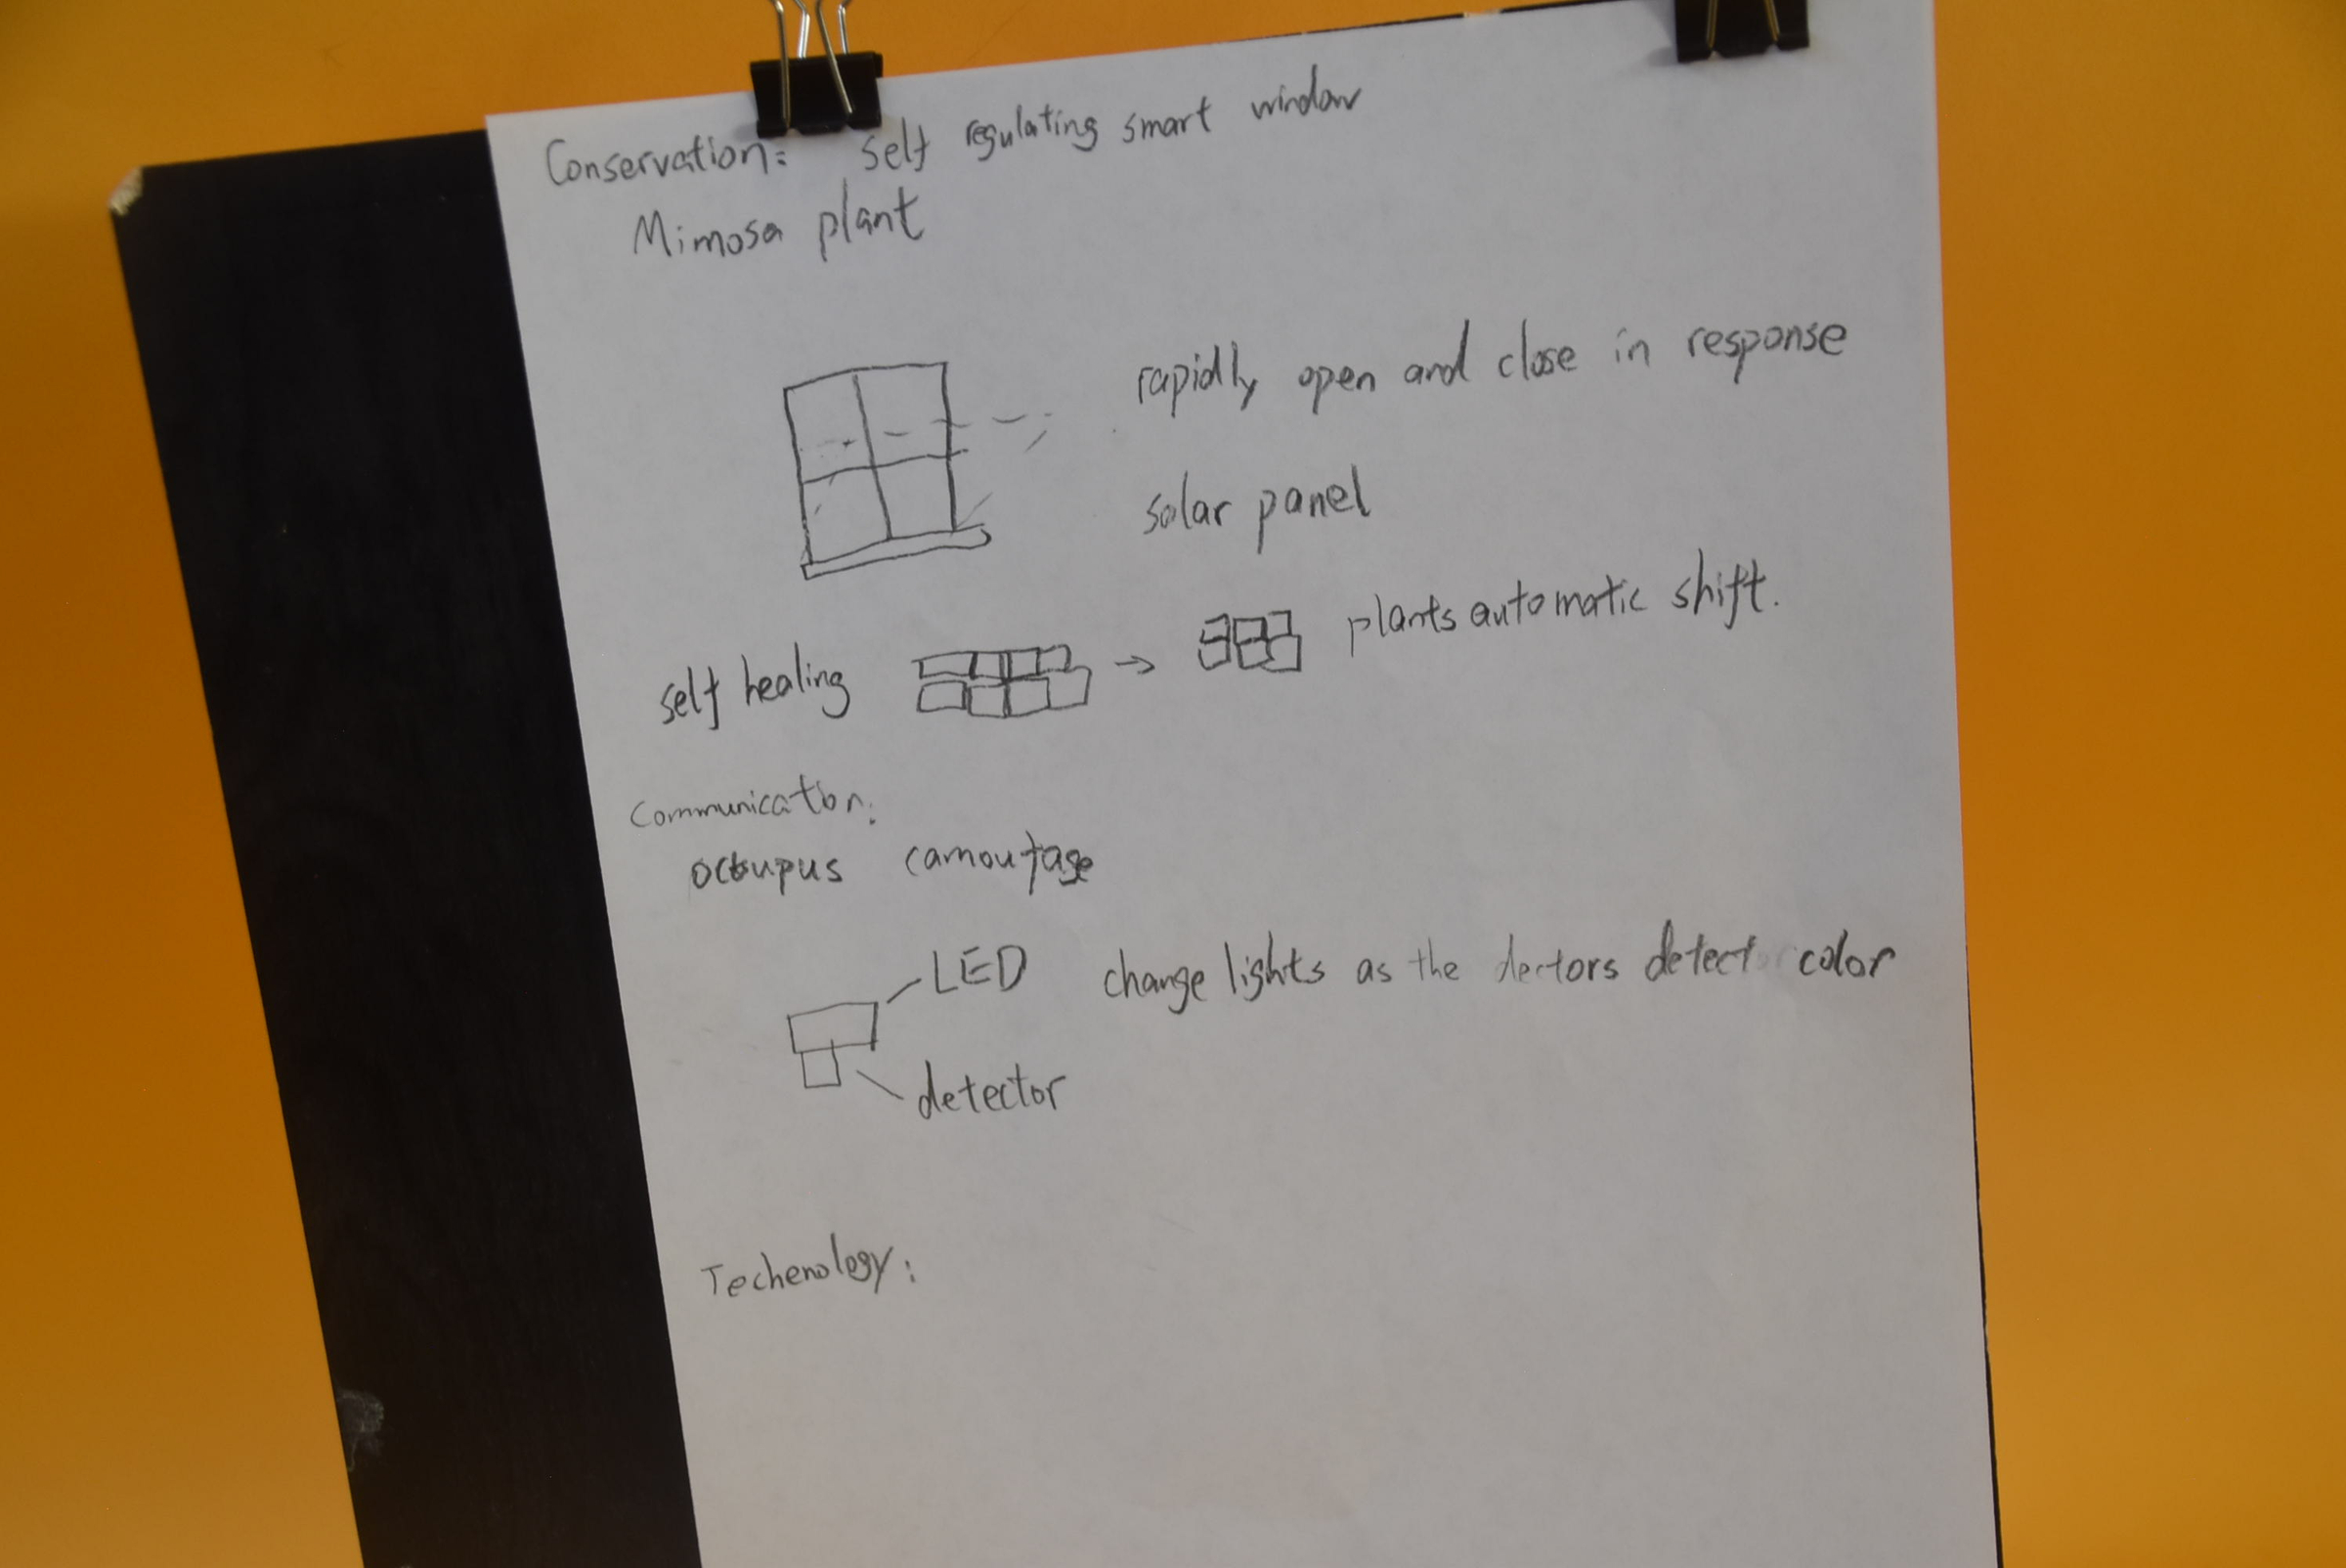 Conservation: self regulating smart window
Mimosa plant
rapidly open and close in response
solar panel
self healing → plants automatic shift.
Communication:
octoupus camoufage
LED change lights as the dectors detect color
detector
Techenology: